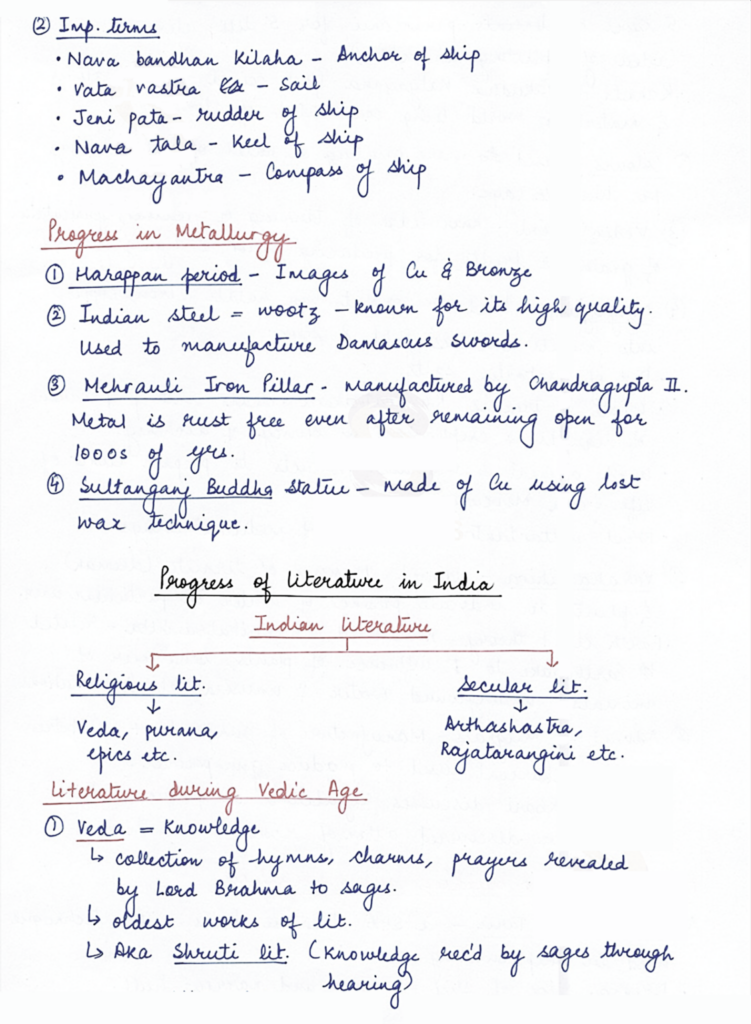 ② Imp. terms
• Nava bandhan Kilaha - Anchor of ship
• Vata vastra - Sail
• Jeni pata - rudder of ship
• Nava tala - Keel of ship
• Machayantra - Compass of ship
Progress in Metallurgy
① Harappan period - Images of Cu & Bronze
② Indian steel = wootz - known for its high quality.
Used to manufacture Damascus swords.
③ Mehrauli Iron Pillar - manufactured by Chandragupta II.
Metal is rust free even after remaining open for
1000s of yrs.
④ Sultanganj Buddha statue - made of Cu using lost
wax technique.
Progress of literature in India
Indian literature
Religious lit. secular lit.
↓ ↓
Veda, purana, Arthashastra,
epics etc. Rajatarangini etc.
Literature during Vedic Age
① Veda = Knowledge
↳ collection of hymns, charms, prayers revealed
by Lord Brahma to sages.
↳ oldest works of lit.
↳ Aka Shruti lit. (Knowledge rec'd by sages through
hearing)